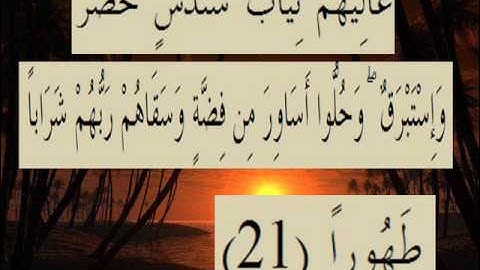 عَالِيَهُمْ ثِيَابُ سُندُسٍ خُضْرٌ
وَإِسْتَبْرَقٌ ۖ وَحُلُّوا أَسَاوِرَ مِن فِضَّةٍ وَسَقَاهُمْ رَبُّهُمْ شَرَاباً
طَهُوراً (21)